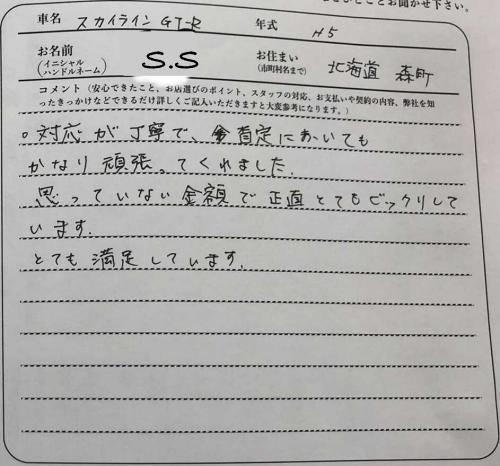 ひとことお聞かせ下さい。
車名 スカイライン GT-R 年式 H5
お名前 (イニシャル ハンドルネーム) S.S お住まい (市町村名まで) 北海道 森町
コメント（安心できたこと、お店選びのポイント、スタッフの対応、お支払いや契約の内容、弊社を知
ったきっかけなどできるだけ詳しくご記入いただきますと大変参考になります。）
○対応が丁寧で、査定においても
かなり頑張ってくれました.
思っていない金額で正直とてもビックリして
います.
とても満足しています.